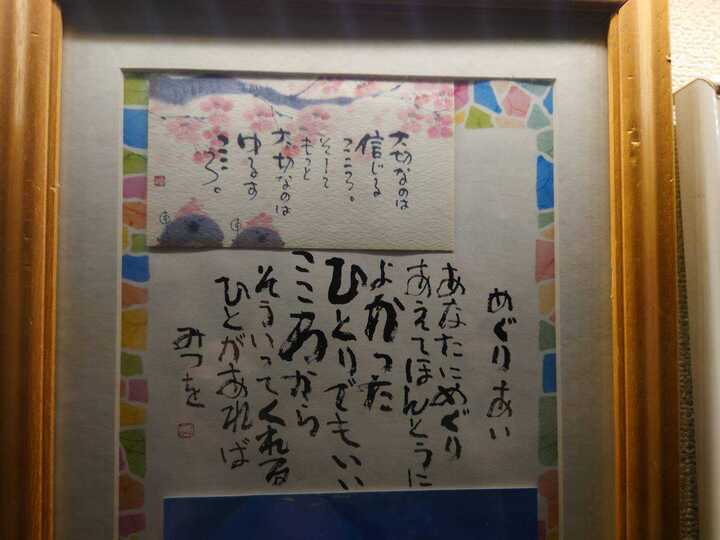 大切なのは
信じる
こころ。
そして
もっと
大切なのは
ゆるす
こころ。
めぐりあい
あなたにめぐり
あえてほんとうに
よかった
ひとりでもいい
こころから
そういってくれる
ひとがあれば
みつを